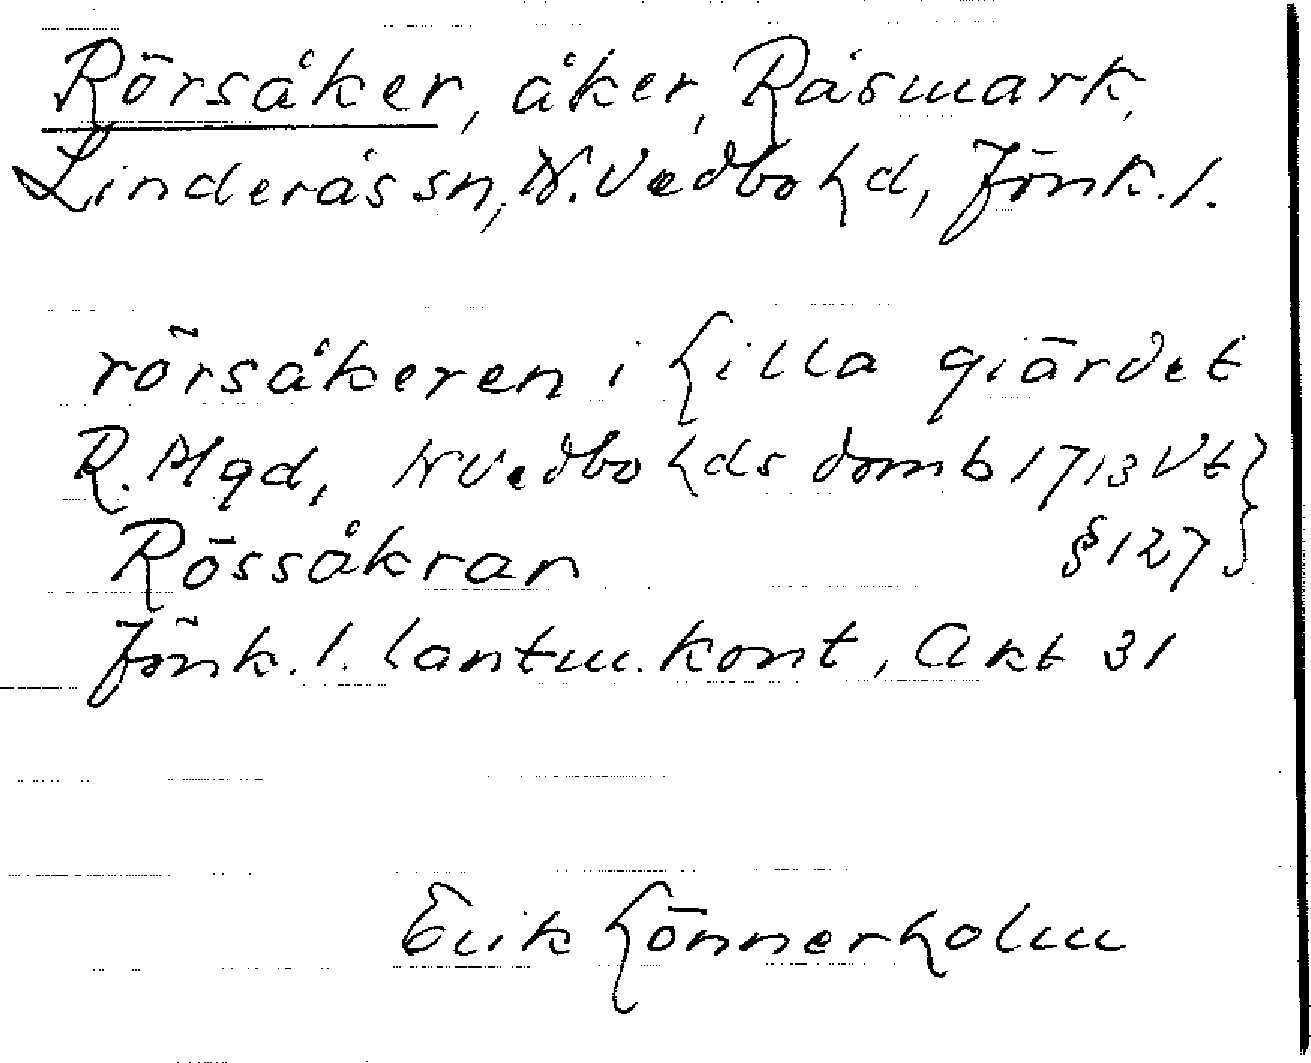 Rörsåker, åker, Råsmark,
Linderås sn, N. Vedbo hd, Jönk. l.
rörsåkeren i Lilla giärdet
R. Mgd, N Vedbo hds domb 1713 Vt
§ 127
Rössåkran
Jönk. l. lantm. kont, Akt 31
Erik Lönnerholm